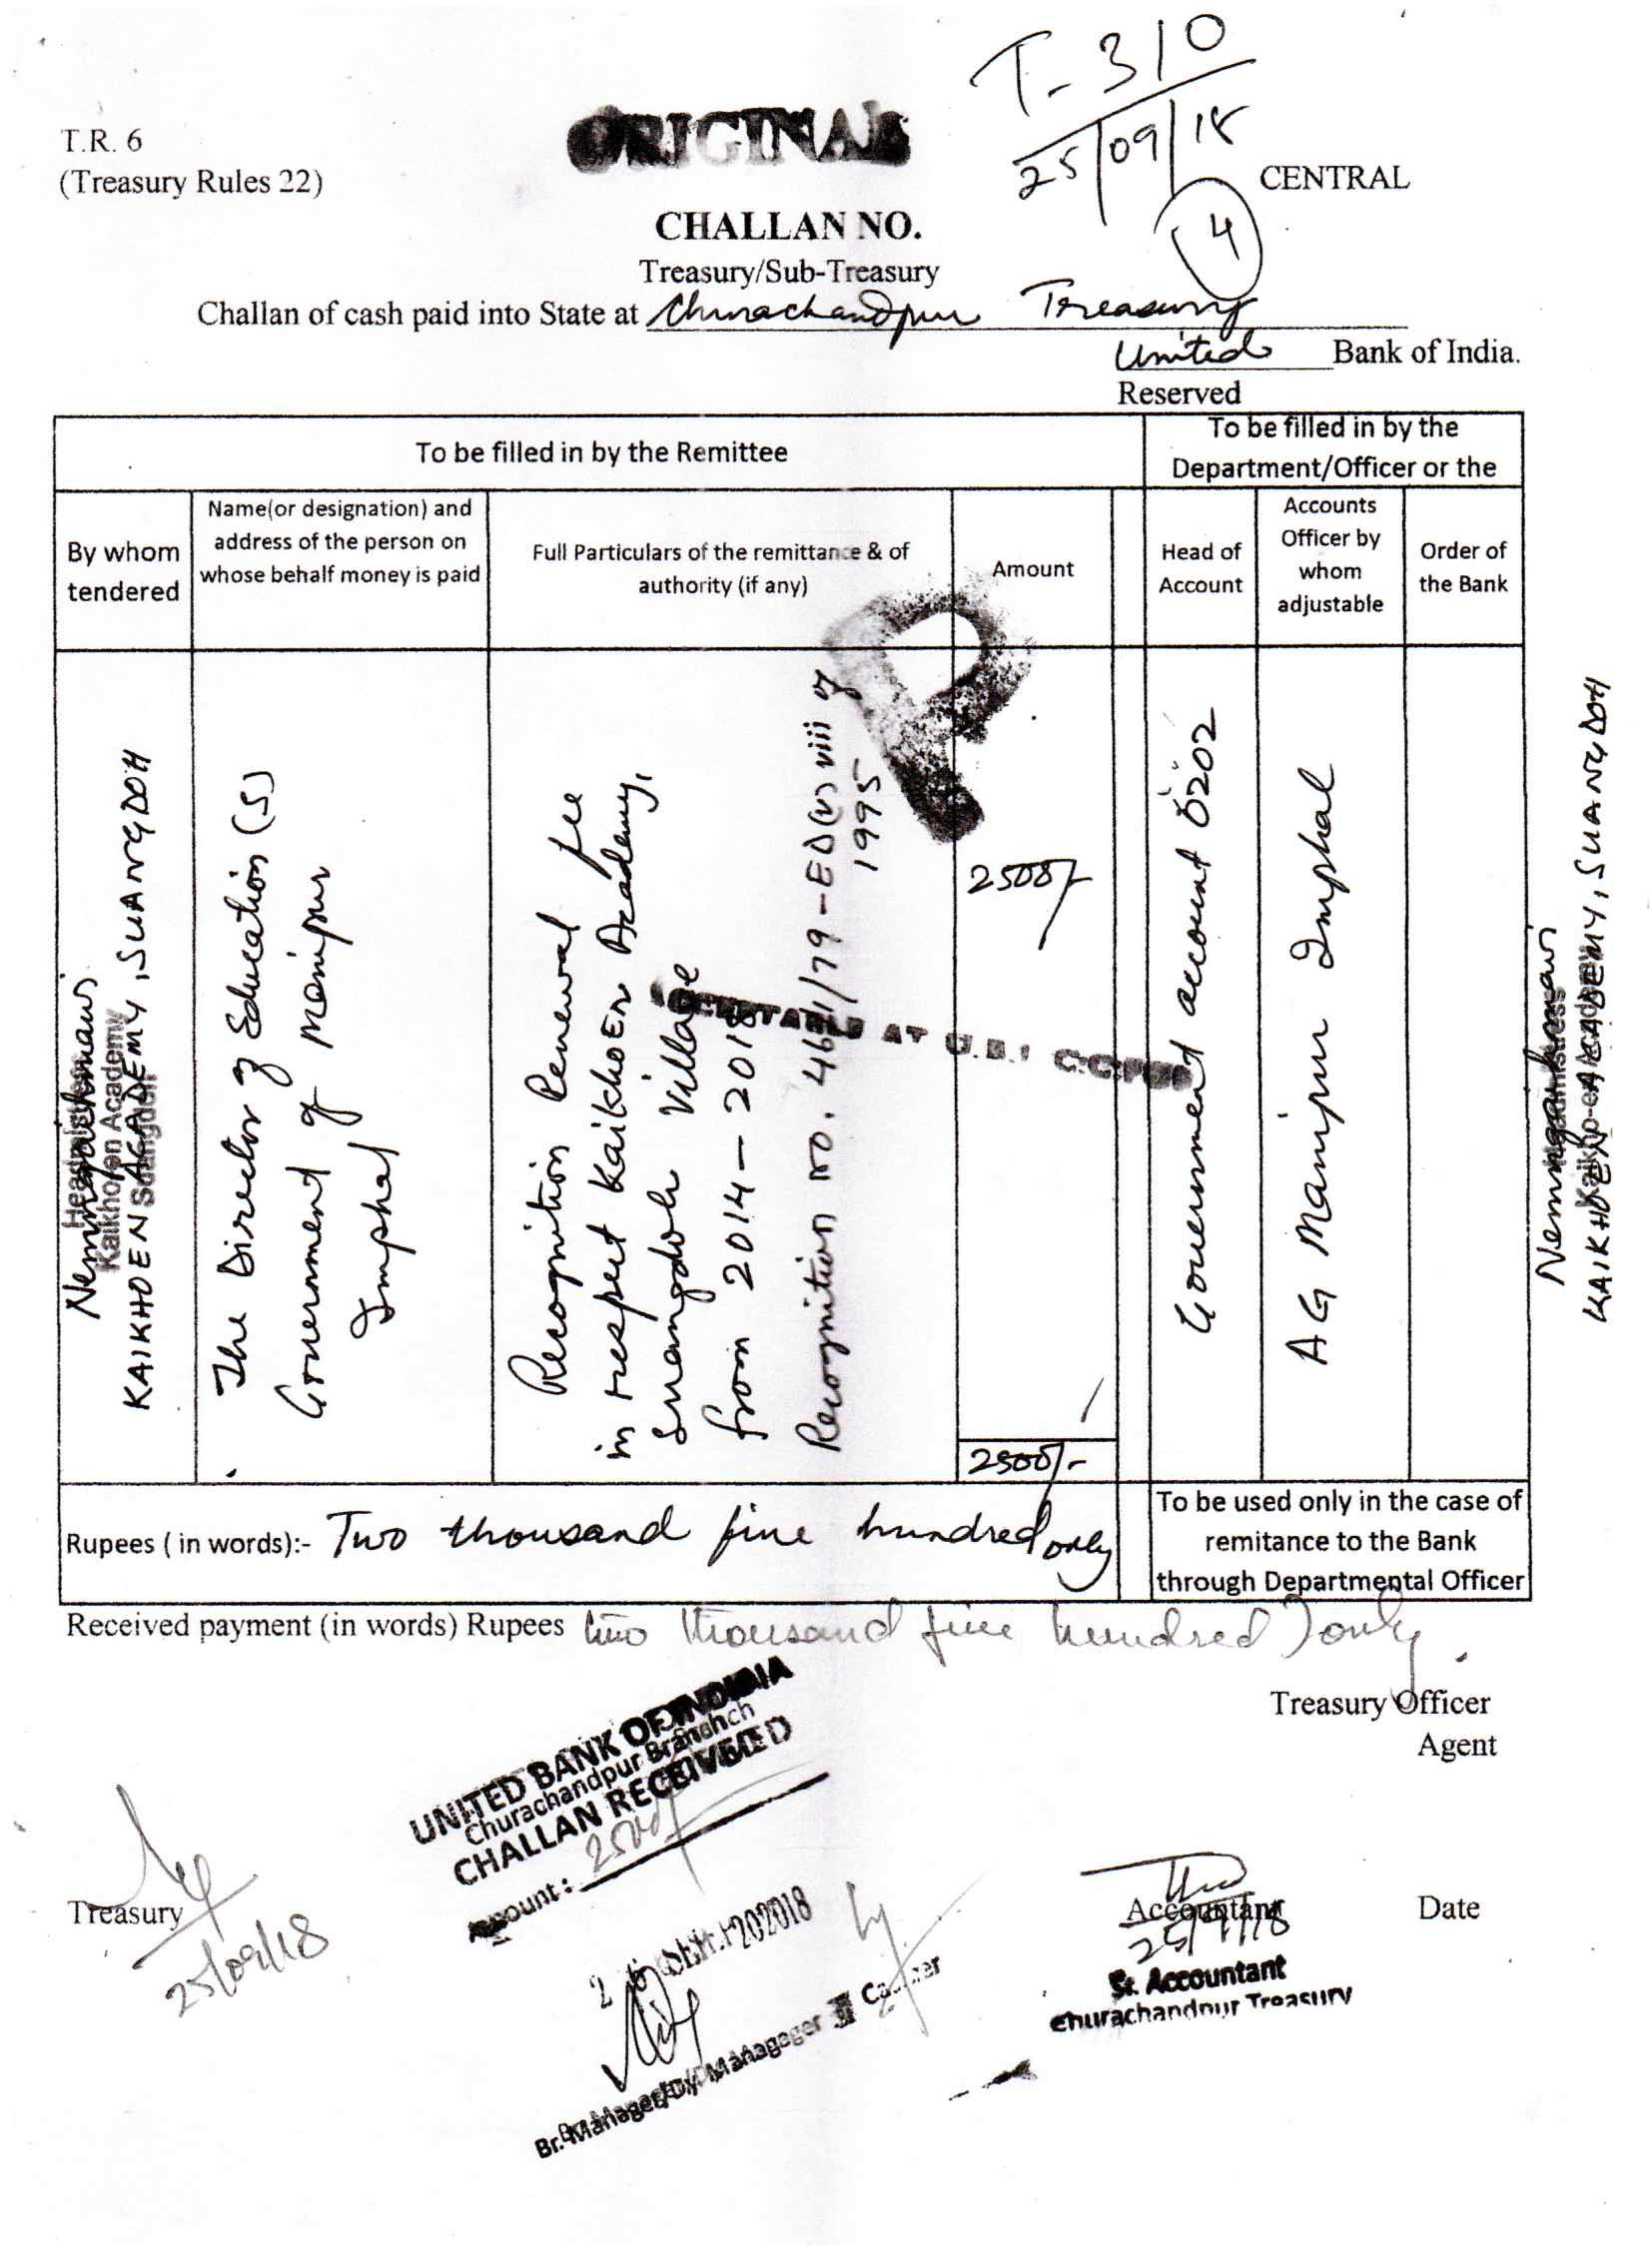 T-310
25/09/18
T.R. 6
ORIGINAL
(Treasury Rules 22)
CENTRAL
4
CHALLAN NO.
Treasury/Sub-Treasury
Challan of cash paid into State at Churachandpur Treasury
United Bank of India.
Reserved
To be filled in by the Remittee
To be filled in by the
Department/Officer or the
By whom
tendered
Name(or designation) and
address of the person on
whose behalf money is paid
Full Particulars of the remittance & of
authority (if any)
Amount
Head of
Account
Accounts
Officer by
whom
adjustable
Order of
the Bank
Headmistress
Kaikhoen Academy
Suangdoh
KAIKHOEN ACADEMY, SUANGDOH
The Director of Education (S)
Government of Manipur
Imphal
Recognition Renewal fee
in respect Kaikhoen Academy,
Suangdoh Village
from 2014-2018
Recognition no.
1995
2500/-
2500/-
AT U.B.I
Government account 0202
AG Manipur Imphal
KAIKHOEN ACADEMY, SUANGDOH
Rupees ( in words):- Two thousand five hundred only
To be used only in the case of
remitance to the Bank
through Departmental Officer
Received payment (in words) Rupees two thousand five hundred) only
Treasury Officer
Agent
UNITED BANK OF INDIA
Churachandpur Branch
CHALLAN RECEIVED
Amount: 2500/-
Treasury
25/09/18
Br. Manager/Dy Manager Cashier
Accountant
25/9/18
Sr. Accountant
Churachandpur Treasury
Date